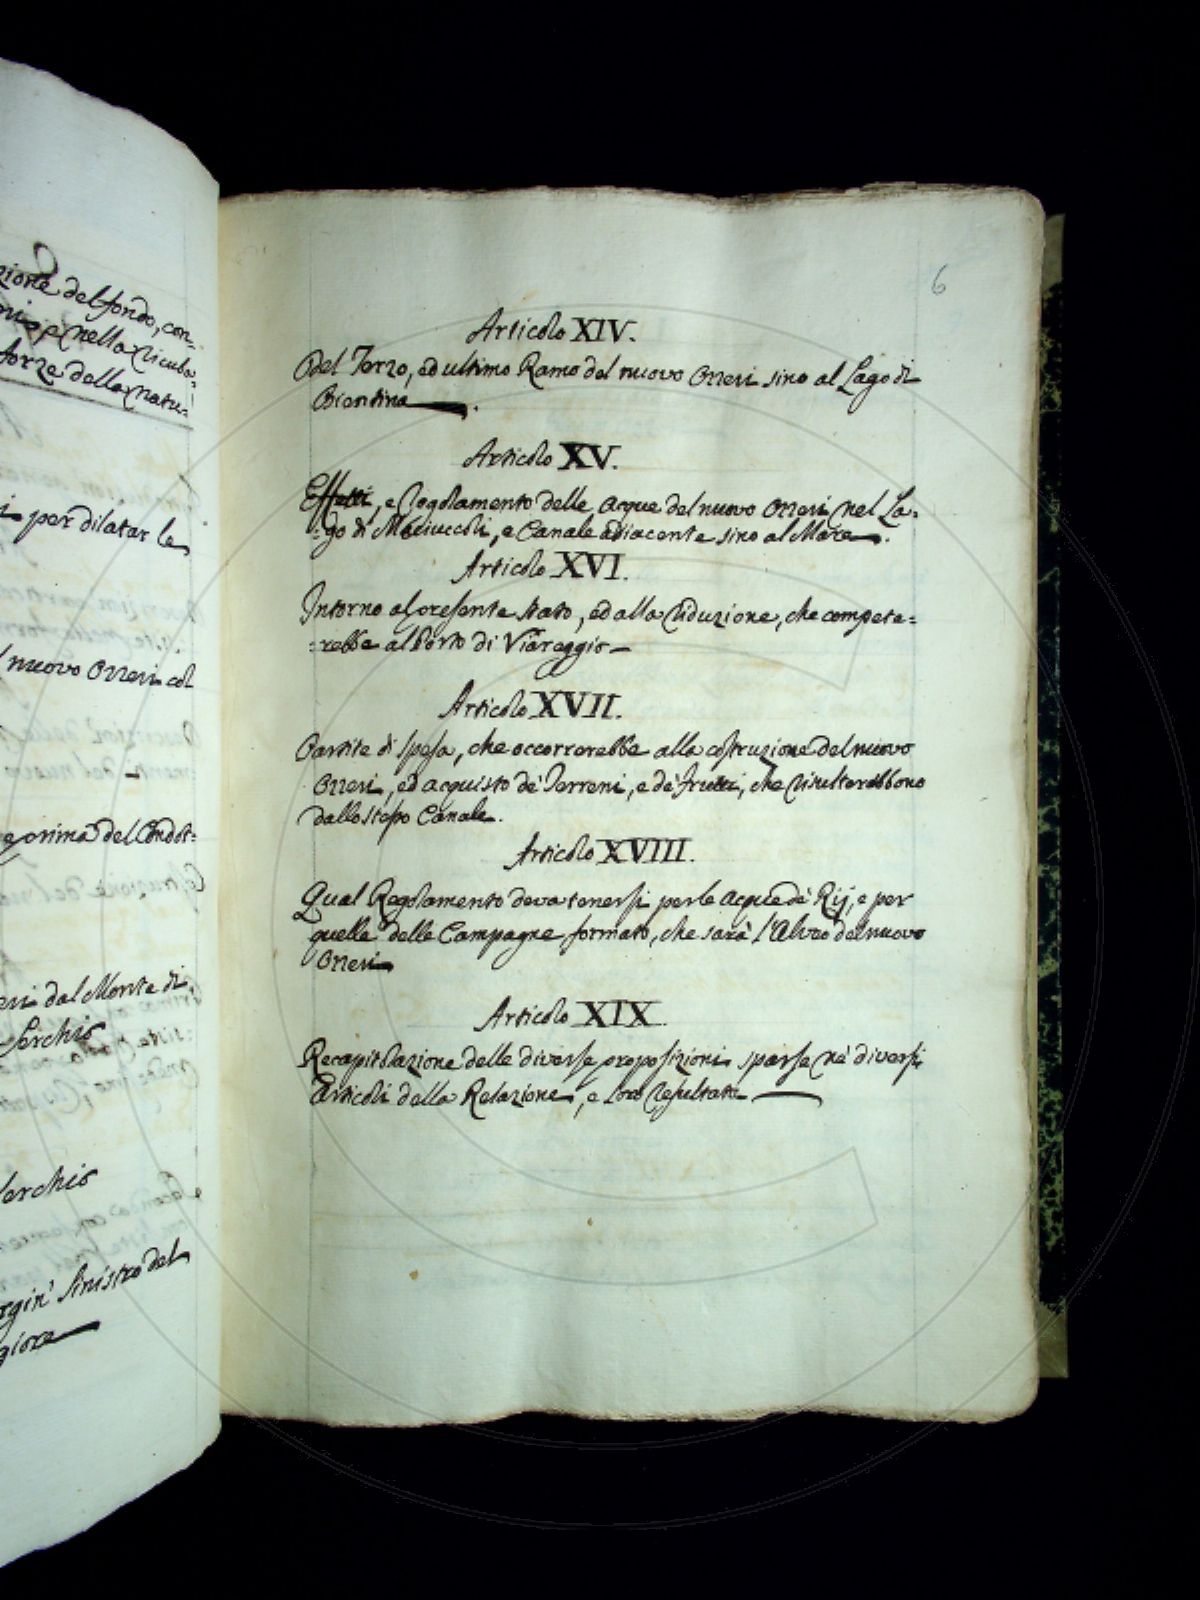 zione del fondo, con-
nella ricuba-
forze della natu-
i per dilatar le
l nuovo Ozzeri col
e prima del Condot-
eri dal Monte di
Serchio
Serchio
rgin' sinistro del
giore
6
Articolo XIV.
Del Terzo, ed ultimo Ramo del nuovo Ozzeri sino al Lago di
Bientina.
Articolo XV.
Effetti, e Regolamento delle acque del nuovo Ozzeri nel La-
-go di Maciuccoli, e Canale adiacente sino al Mare.
Articolo XVI.
Intorno al presente stato, ed alla riduzione, che compete=
=rebbe al Porto di Viareggio
Articolo XVII.
Partite di spesa, che occorrerebbe alla costruzione del nuovo
Ozzeri, ed acquisto de' Terreni, e de' frutti, che risulterebbono
dallo stesso Canale.
Articolo XVIII.
Qual Regolamento deva tenersi per le acque de' Rij, e per
quelle delle Campagne formato, che sarà l'Alveo del nuovo
Ozzeri
Articolo XIX.
Recapitolazione delle diverse proposizioni sparse ne' diversi
Articoli della Relazione, e loro resultate